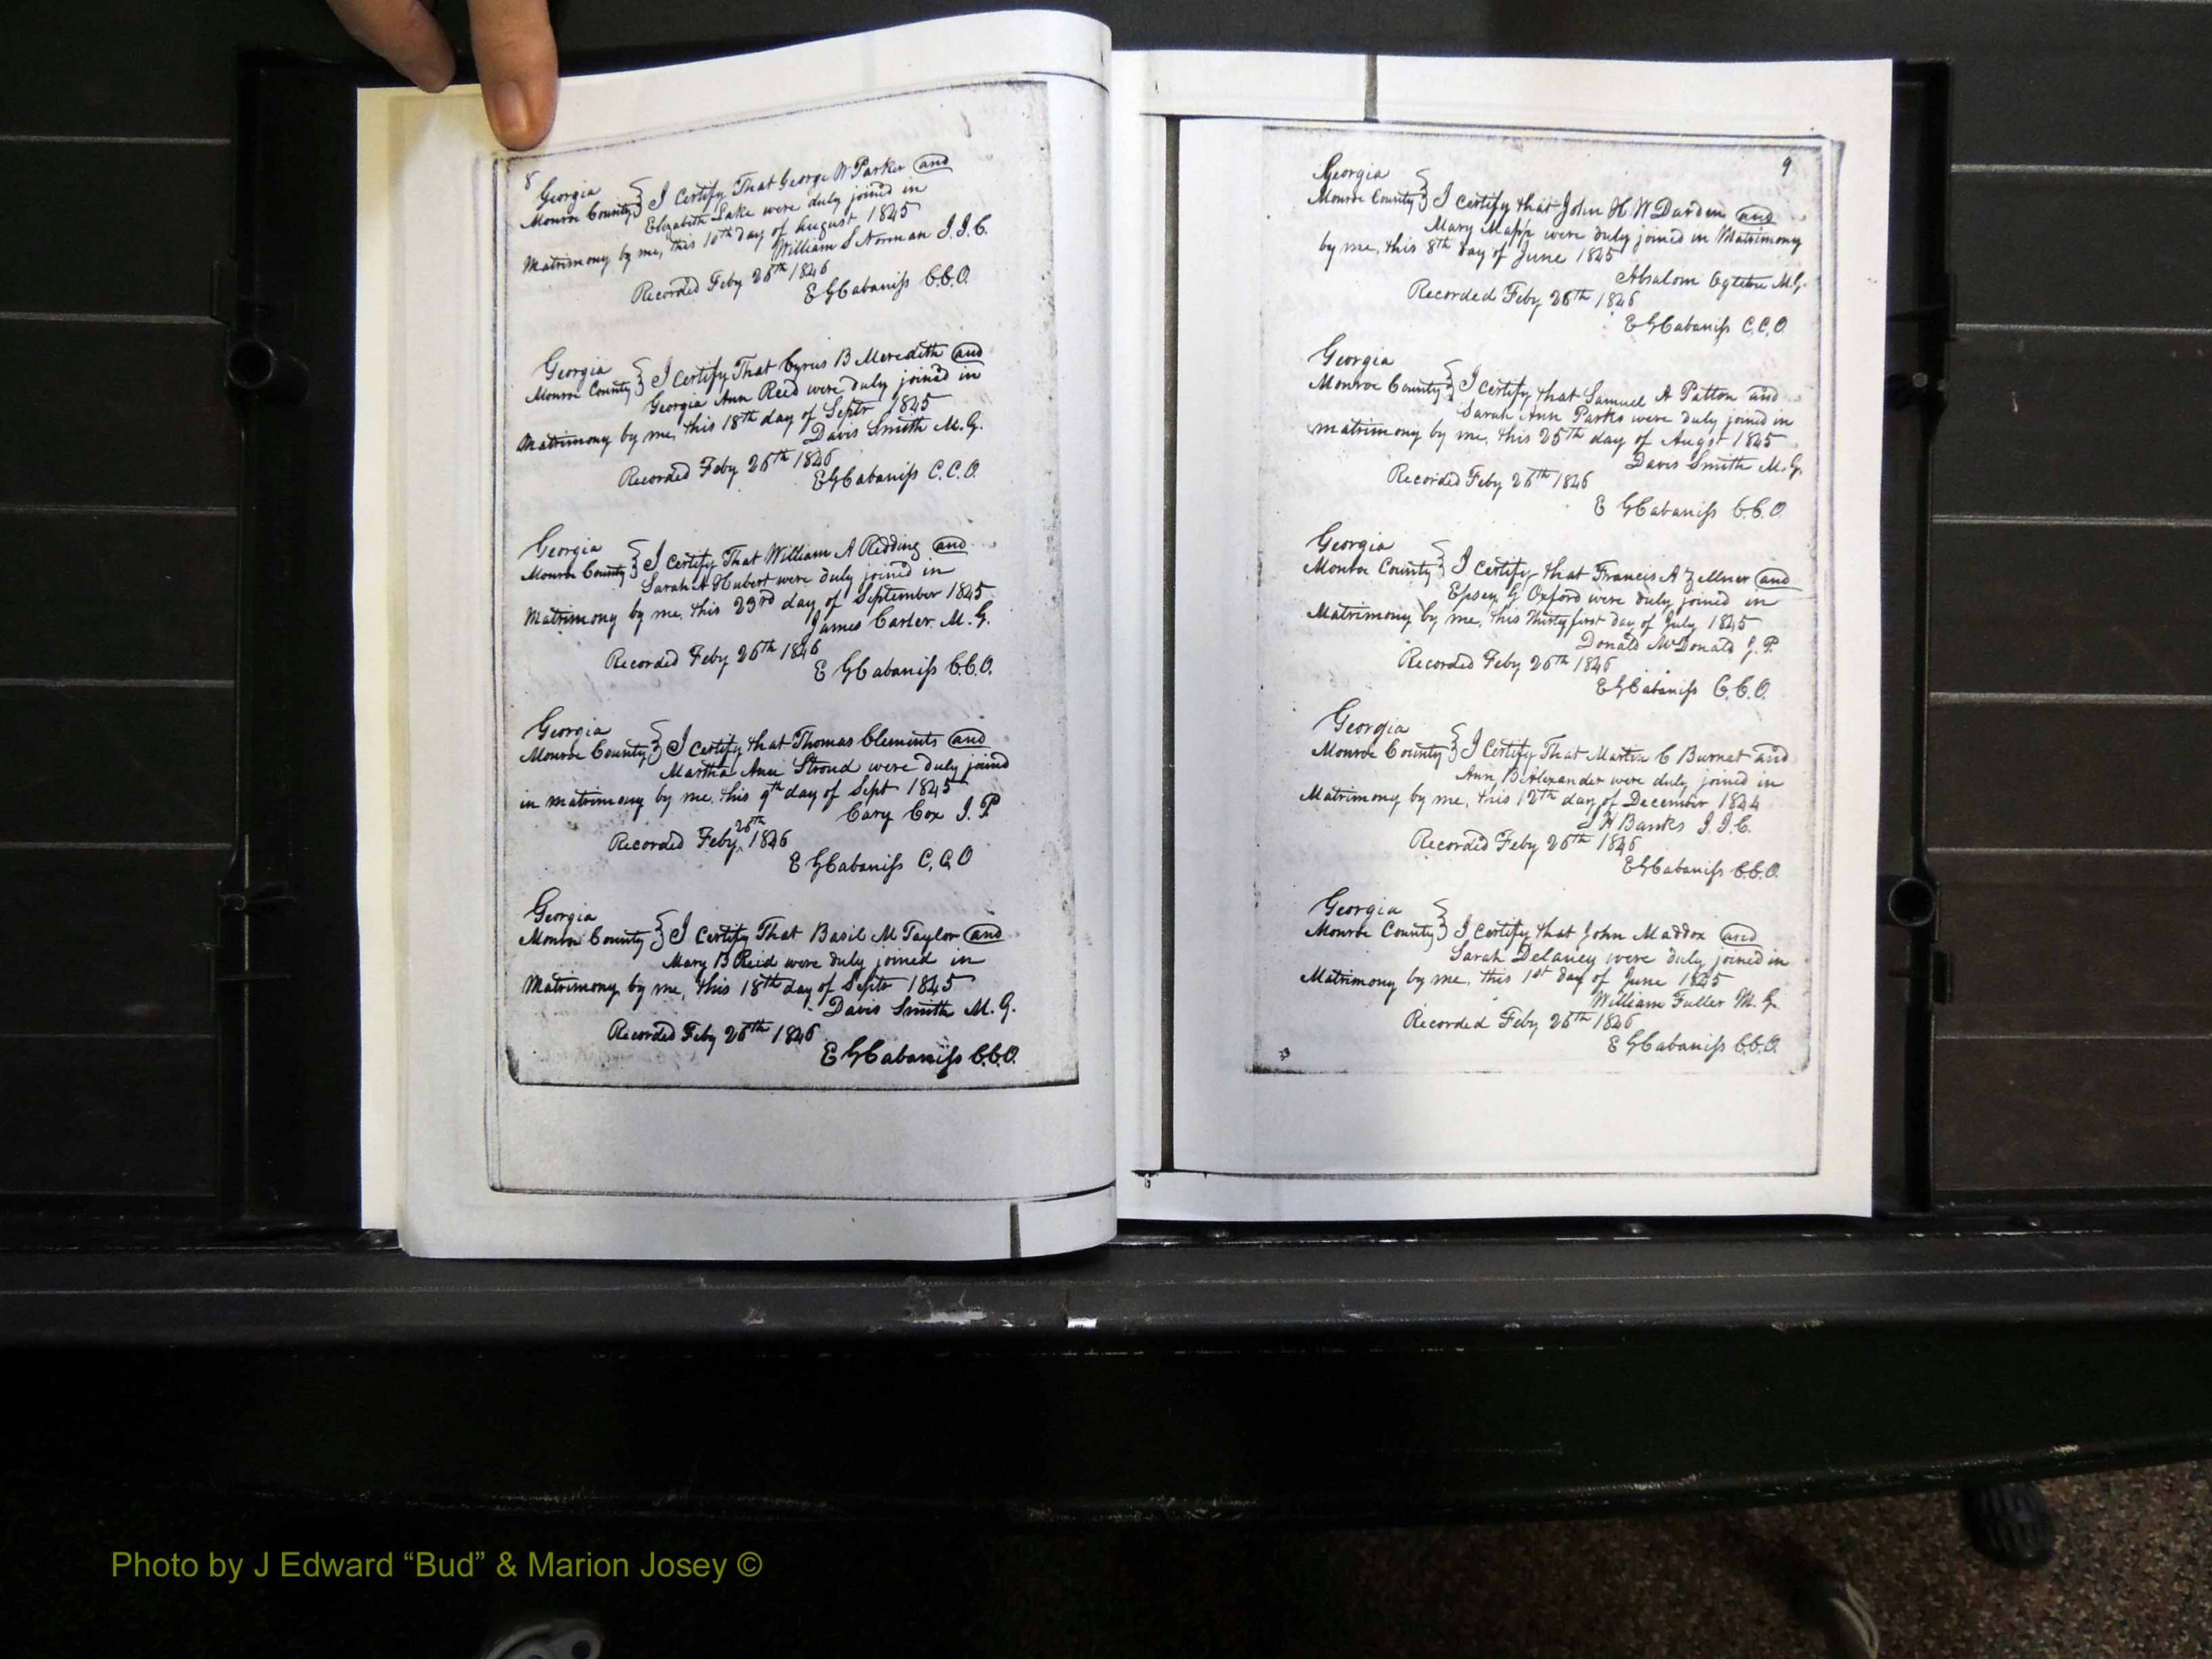 8
Georgia
Monroe County } I Certify That George W Parker and
Elizabeth Lake were duly joined in
Matrimony by me, this 10th day of August 1845
William S Norman J.I.C.
Recorded Feby 26th 1846
E G Cabaniss C.C.O.
Georgia
Monroe County } I Certify That Cyrus B Meredith and
Georgia Ann Reed were duly joined in
Matrimony by me, this 18th day of Septr 1845
Davis Smith M.G.
Recorded Feby 26th 1846
E G Cabaniss C.C.O.
Georgia
Monroe County } I Certify That William A Redding and
Sarah A Hubert were duly joined in
Matrimony by me, this 23rd day of September 1845
James Carter M.G.
Recorded Feby 26th 1846
E G Cabaniss C.C.O.
Georgia
Monroe County } I Certify that Thomas Clements and
Martha Ann Stroud were duly joined
in matrimony by me, this 9th day of Sept 1845
Cary Cox J.P
Recorded Feby 26th 1846
E G Cabaniss C.C.O
Georgia
Monroe County } I Certify That Basil M Taylor and
Mary B Reid were duly joined in
Matrimony by me, this 18th day of Septr 1845
Davis Smith M.G.
Recorded Feby 26th 1846
E G Cabaniss C.C.O.
9
Georgia
Monroe County } I Certify that John H W Darden and
Mary Mapp were duly joined in Matrimony
by me, this 8th day of June 1845
Absalom Ogletree M.G.
Recorded Feby 26th 1846
E G Cabaniss C.C.O.
Georgia
Monroe County } I Certify that Samuel A Patton and
Sarah Ann Parks were duly joined in
matrimony by me, this 25th day of Augst 1845
Davis Smith M.G.
Recorded Feby 26th 1846
E G Cabaniss C.C.O.
Georgia
Monroe County } I Certify that Francis A Zellner and
Epsey G Oxford were duly joined in
Matrimony by me, this Thirty first day of July 1845
Donald McDonald J.P.
Recorded Feby 26th 1846
E G Cabaniss C.C.O.
Georgia
Monroe County } I Certify That Martin C Burnet and
Ann B Alexander were duly joined in
Matrimony by me, this 12th day of December 1844
J H Banks J.I.C.
Recorded Feby 26th 1846
E G Cabaniss C.C.O.
Georgia
Monroe County } I Certify that John Maddox and
Sarah Delaney were duly joined in
Matrimony by me, this 1st day of June 1845
William Fuller M.G.
Recorded Feby 26th 1846
E G Cabaniss C.C.O.
Photo by J Edward “Bud” & Marion Josey ©